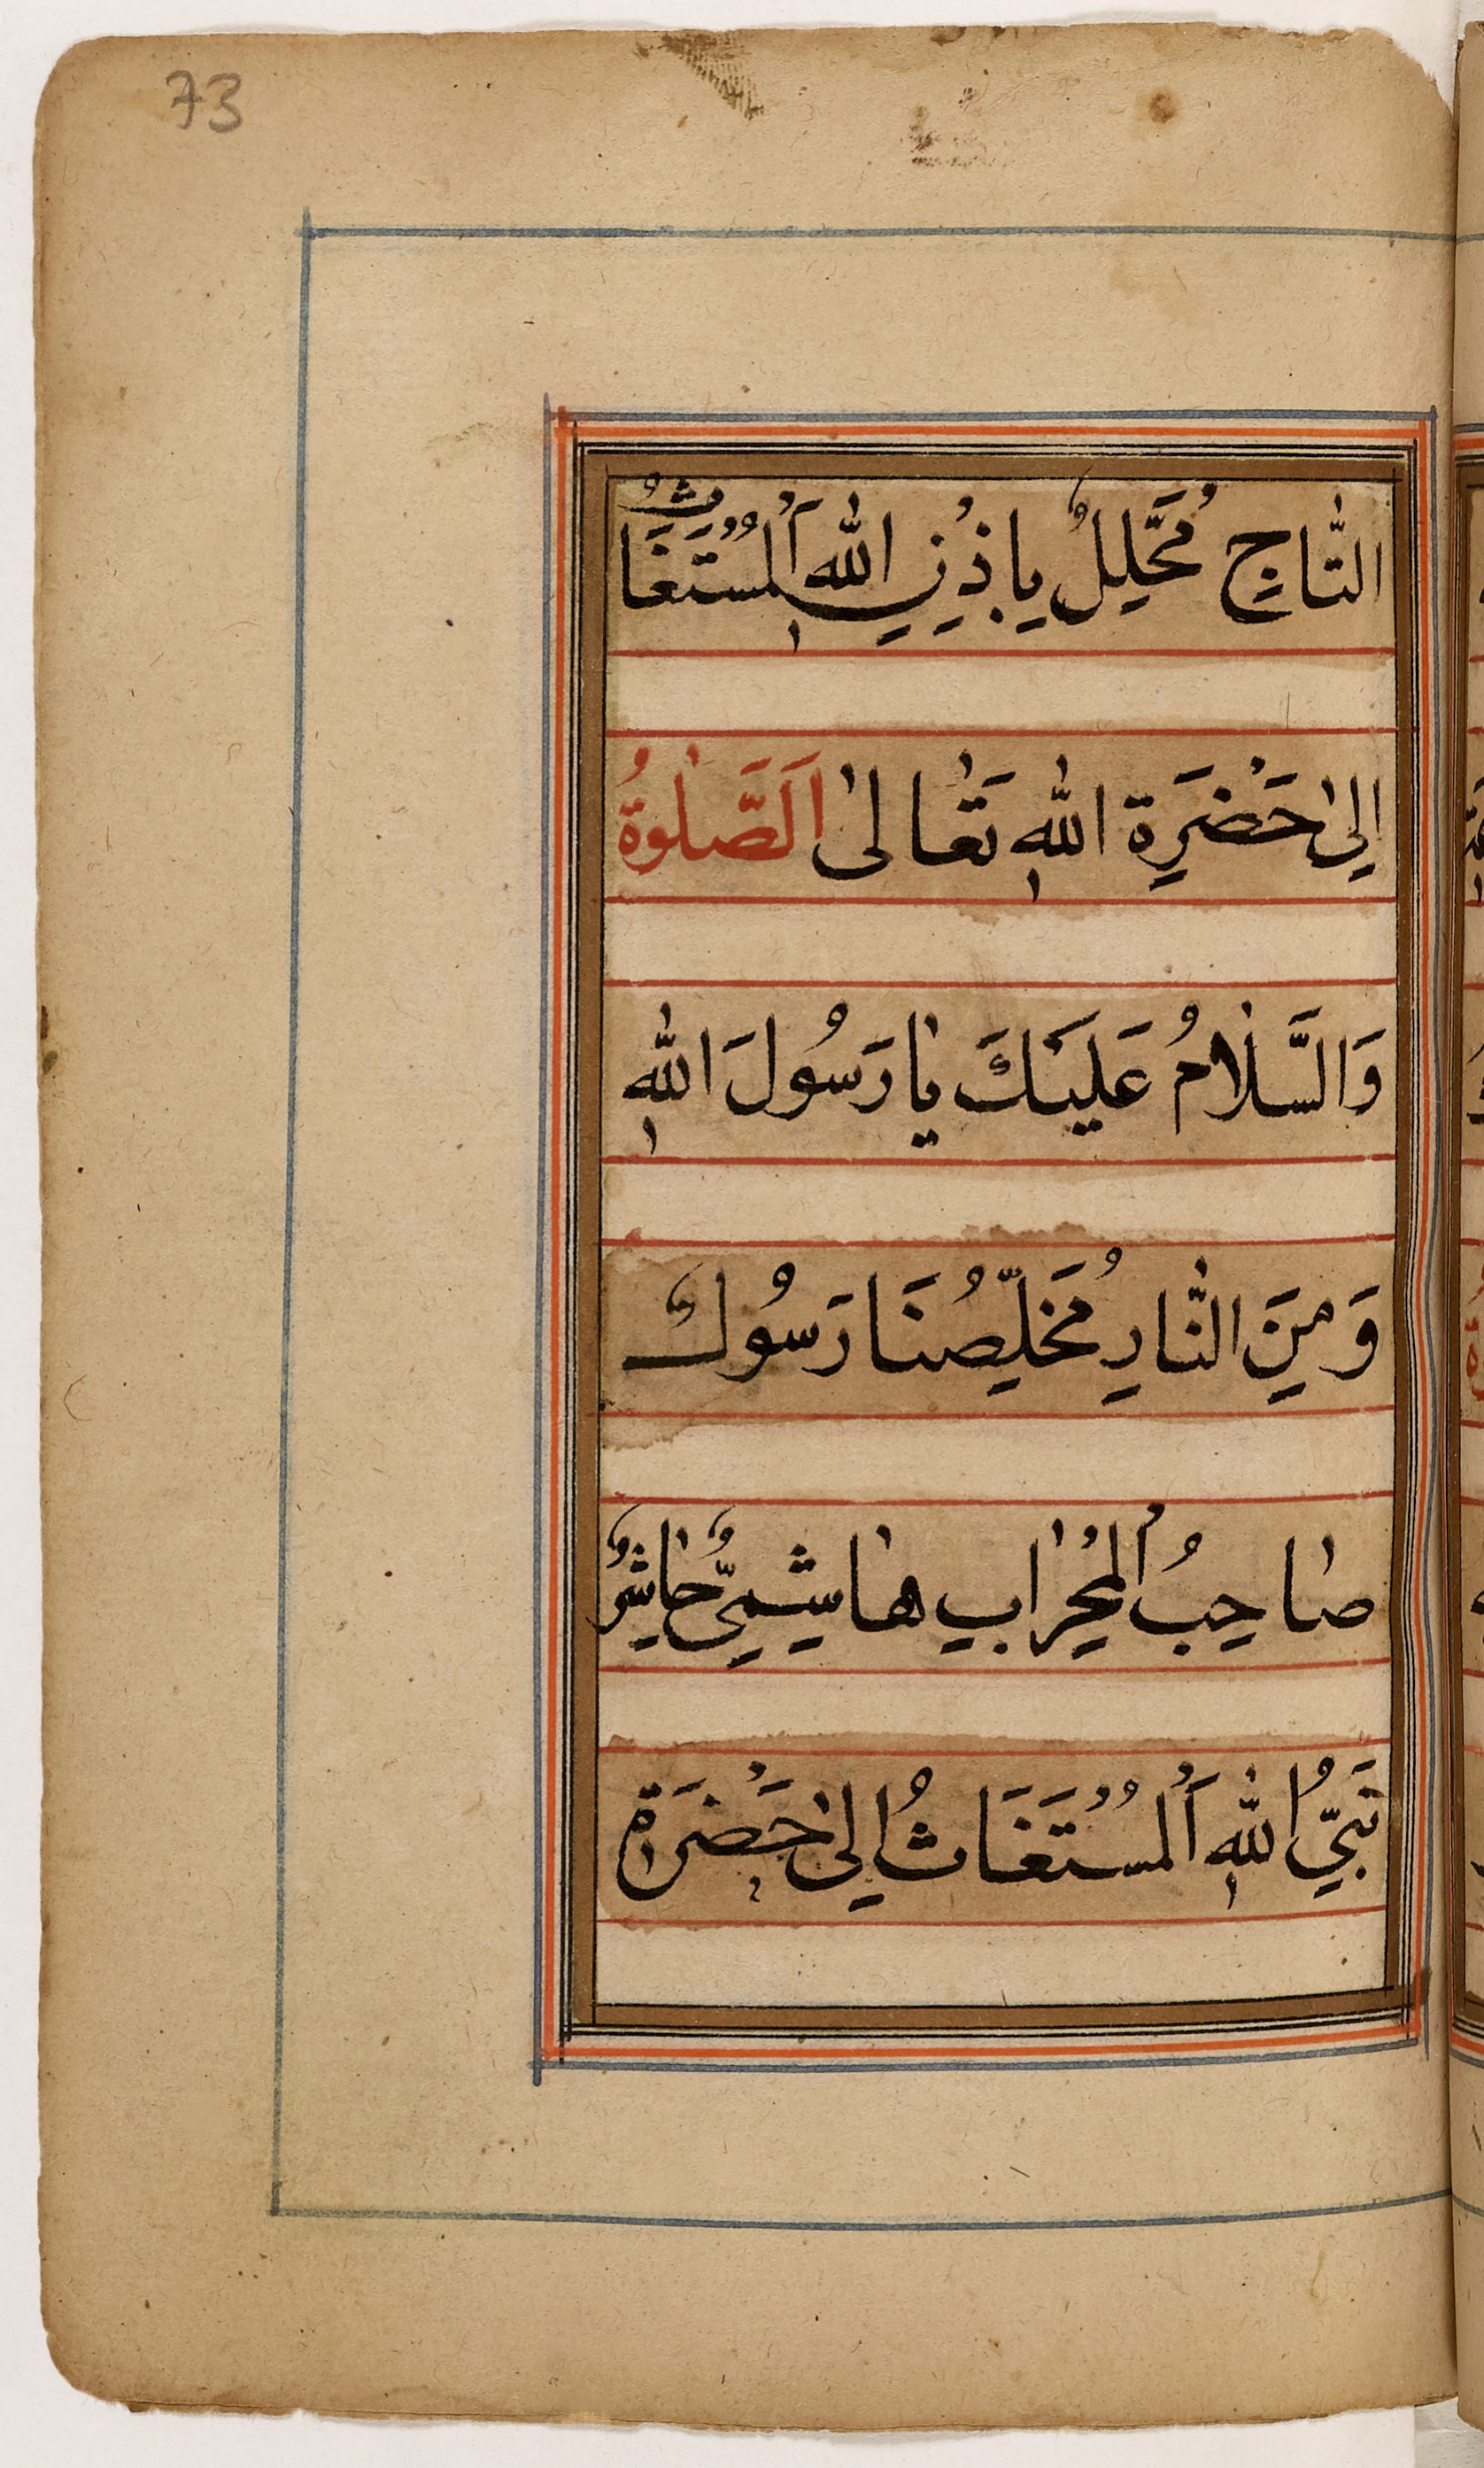 73
التَّاجِ مُحَّلِيلٌ يِاذْنِ اللهِ اَلْمُسْتَغَاثُ
اِلىٰ حَضْرَةِ اللهِ تَعٰالىٰ اَلصَّلٰوةُ
وَالسَّلٰامُ عَلَيْكَ يٰا رَسُولَ اللهِ
وَمِنَ النّٰارِ مُخَلِّصُنَا رَسُولٌ
صٰاحِبُ الْمِحْرٰابِ هٰاشِمِىٌّ حٰاشِرٌ
نَبِىُّ اللهِ اَلْمُسْتَغَاثُ اِلىٰ حَضْرَةِ